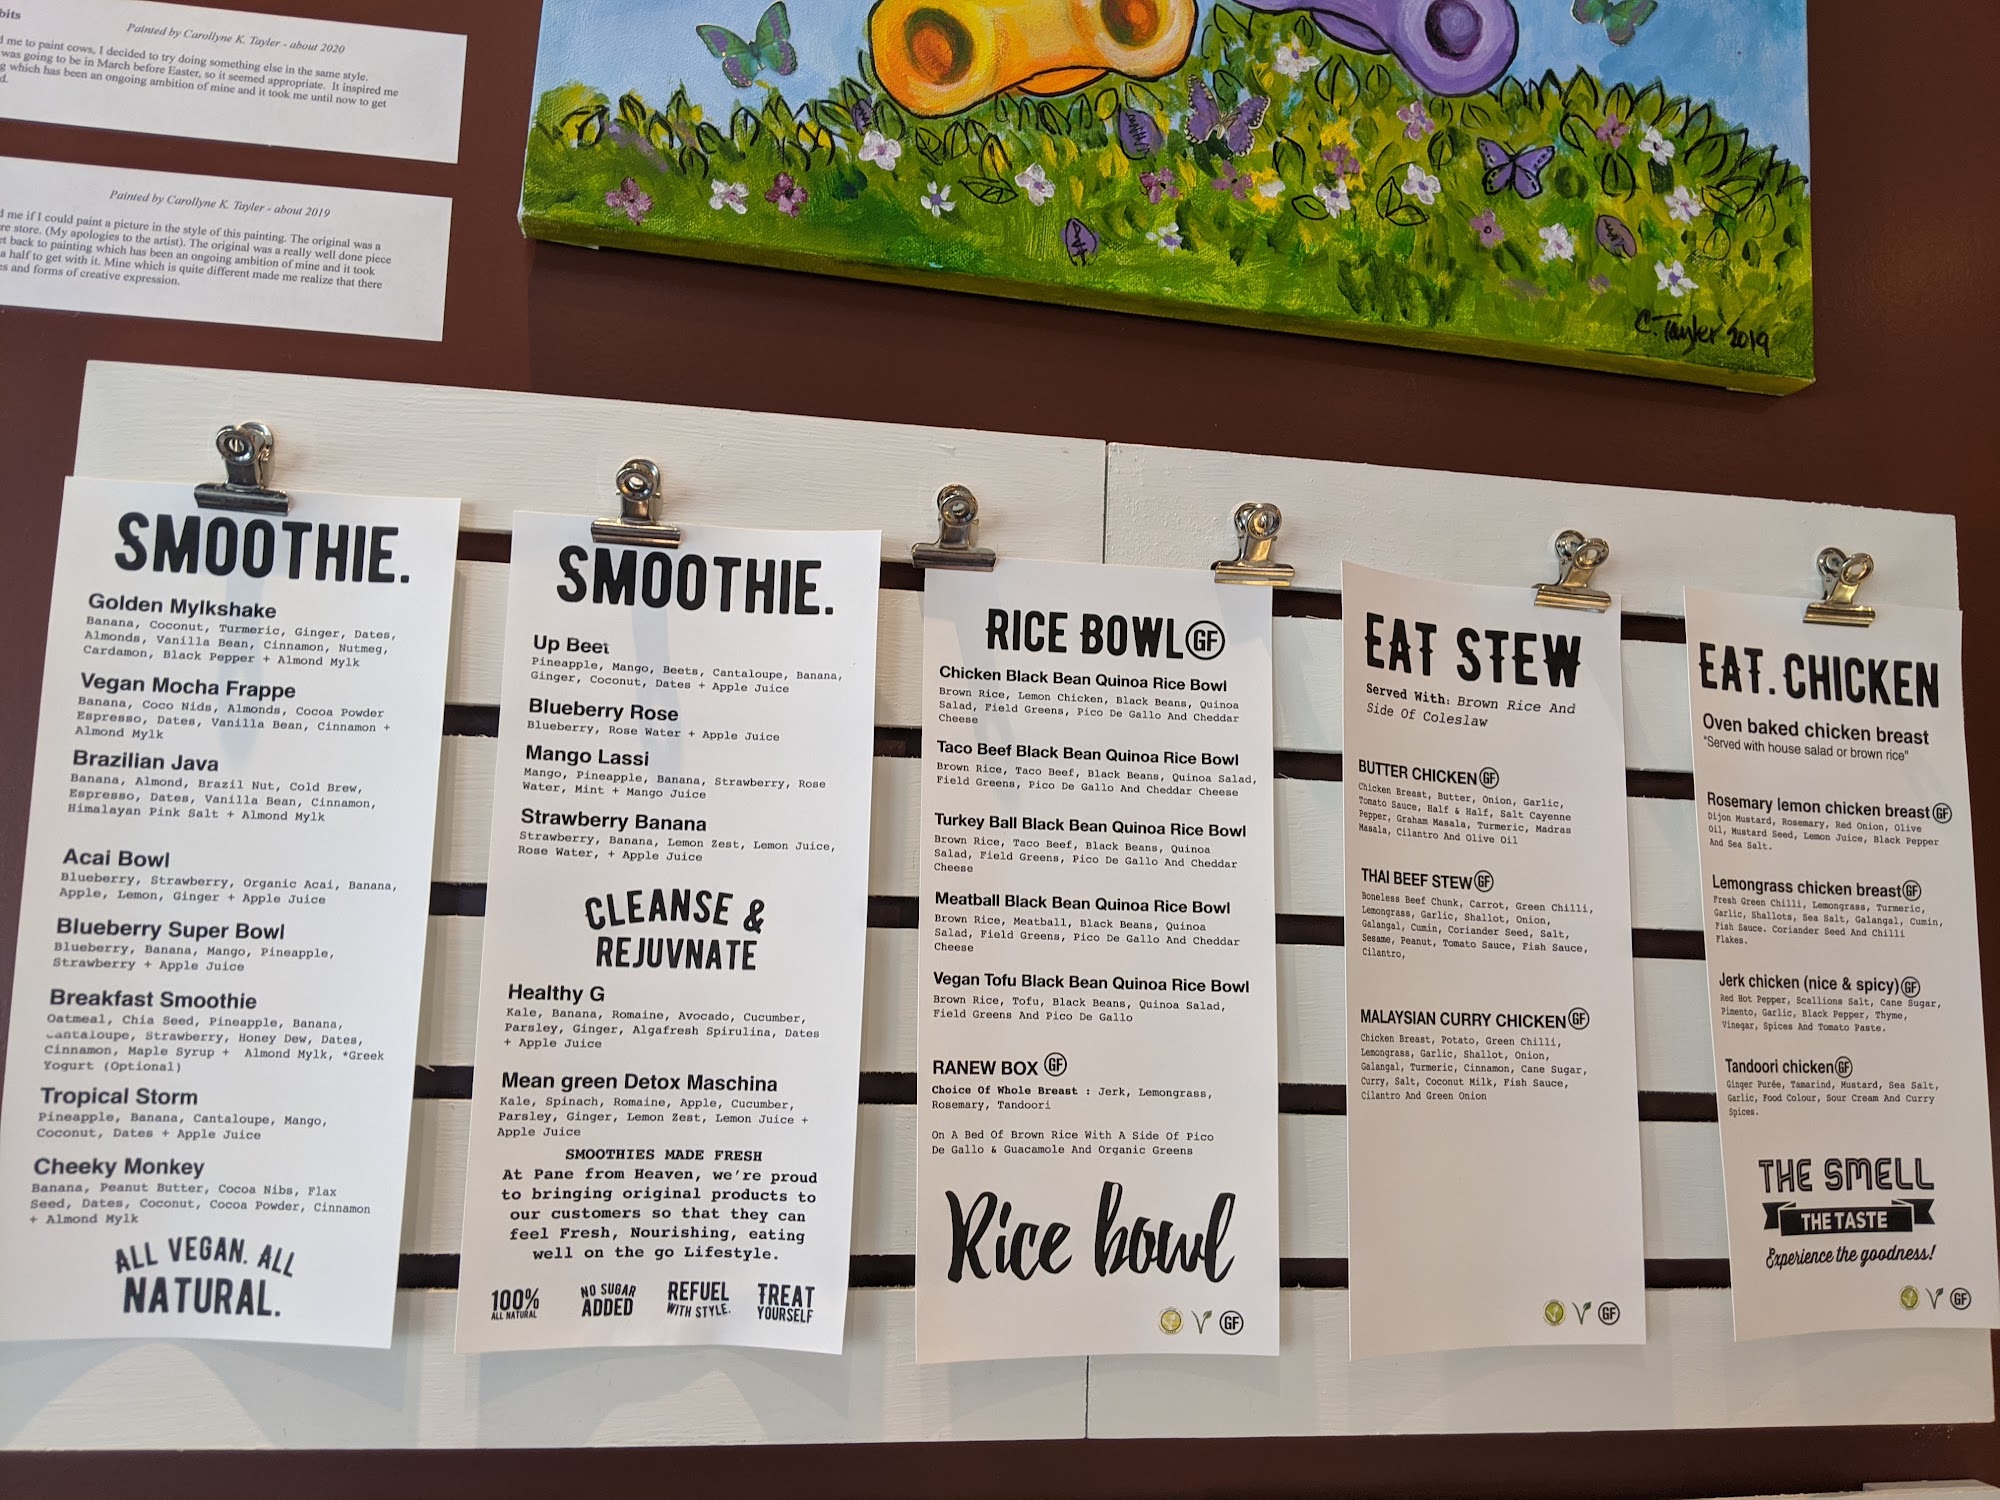 bits
Painted by Carollyne K. Tayler - about 2020
d me to paint cows, I decided to try doing something else in the same style.
was going to be in March before Easter, so it seemed appropriate. It inspired me
g which has been an ongoing ambition of mine and it took me until now to get
d.
Painted by Carollyne K. Tayler - about 2019
d me if I could paint a picture in the style of this painting. The original was a
re store. (My apologies to the artist). The original was a really well done piece
et back to painting which has been an ongoing ambition of mine and it took
a half to get with it. Mine which is quite different made me realize that there
es and forms of creative expression.
C. Tayler 2019
SMOOTHIE.
Golden Mylkshake
Banana, Coconut, Turmeric, Ginger, Dates,
Almonds, Vanilla Bean, Cinnamon, Nutmeg,
Cardamon, Black Pepper + Almond Mylk
Vegan Mocha Frappe
Banana, Coco Nids, Almonds, Cocoa Powder
Espresso, Dates, Vanilla Bean, Cinnamon +
Almond Mylk
Brazilian Java
Banana, Almond, Brazil Nut, Cold Brew,
Espresso, Dates, Vanilla Bean, Cinnamon,
Himalayan Pink Salt + Almond Mylk
Acai Bowl
Blueberry, Strawberry, Organic Acai, Banana,
Apple, Lemon, Ginger + Apple Juice
Blueberry Super Bowl
Blueberry, Banana, Mango, Pineapple,
Strawberry + Apple Juice
Breakfast Smoothie
Oatmeal, Chia Seed, Pineapple, Banana,
Cantaloupe, Strawberry, Honey Dew, Dates,
Cinnamon, Maple Syrup + Almond Mylk, *Greek
Yogurt (Optional)
Tropical Storm
Pineapple, Banana, Cantaloupe, Mango,
Coconut, Dates + Apple Juice
Cheeky Monkey
Banana, Peanut Butter, Cocoa Nibs, Flax
Seed, Dates, Coconut, Cocoa Powder, Cinnamon
+ Almond Mylk
ALL VEGAN. ALL
NATURAL.
SMOOTHIE.
Up Beet
Pineapple, Mango, Beets, Cantaloupe, Banana,
Ginger, Coconut, Dates + Apple Juice
Blueberry Rose
Blueberry, Rose Water + Apple Juice
Mango Lassi
Mango, Pineapple, Banana, Strawberry, Rose
Water, Mint + Mango Juice
Strawberry Banana
Strawberry, Banana, Lemon Zest, Lemon Juice,
Rose Water, + Apple Juice
CLEANSE &
REJUVNATE
Healthy G
Kale, Banana, Romaine, Avocado, Cucumber,
Parsley, Ginger, Algafresh Spirulina, Dates
+ Apple Juice
Mean green Detox Maschina
Kale, Spinach, Romaine, Apple, Cucumber,
Parsley, Ginger, Lemon Zest, Lemon Juice +
Apple Juice
SMOOTHIES MADE FRESH
At Pane from Heaven, we're proud
to bringing original products to
our customers so that they can
feel Fresh, Nourishing, eating
well on the go Lifestyle.
100%
ALL NATURAL
NO SUGAR
ADDED
REFUEL
WITH STYLE.
TREAT
YOURSELF
RICE BOWL GF
Chicken Black Bean Quinoa Rice Bowl
Brown Rice, Lemon Chicken, Black Beans, Quinoa
Salad, Field Greens, Pico De Gallo And Cheddar
Cheese
Taco Beef Black Bean Quinoa Rice Bowl
Brown Rice, Taco Beef, Black Beans, Quinoa Salad,
Field Greens, Pico De Gallo And Cheddar Cheese
Turkey Ball Black Bean Quinoa Rice Bowl
Brown Rice, Taco Beef, Black Beans, Quinoa
Salad, Field Greens, Pico De Gallo And Cheddar
Cheese
Meatball Black Bean Quinoa Rice Bowl
Brown Rice, Meatball, Black Beans, Quinoa
Salad, Field Greens, Pico De Gallo And Cheddar
Cheese
Vegan Tofu Black Bean Quinoa Rice Bowl
Brown Rice, Tofu, Black Beans, Quinoa Salad,
Field Greens And Pico De Gallo
RANEW BOX GF
Choice Of Whole Breast : Jerk, Lemongrass,
Rosemary, Tandoori
On A Bed Of Brown Rice With A Side Of Pico
De Gallo & Guacamole And Organic Greens
Rice bowl
GF
EAT STEW
Served With: Brown Rice And
Side Of Coleslaw
BUTTER CHICKEN GF
Chicken Breast, Butter, Onion, Garlic,
Tomato Sauce, Half & Half, Salt Cayenne
Pepper, Graham Masala, Turmeric, Madras
Masala, Cilantro And Olive Oil
THAI BEEF STEW GF
Boneless Beef Chunk, Carrot, Green Chilli,
Lemongrass, Garlic, Shallot, Onion,
Galangal, Cumin, Coriander Seed, Salt,
Sesame, Peanut, Tomato Sauce, Fish Sauce,
Cilantro,
MALAYSIAN CURRY CHICKEN GF
Chicken Breast, Potato, Green Chilli,
Lemongrass, Garlic, Shallot, Onion,
Galangal, Turmeric, Cinnamon, Cane Sugar,
Curry, Salt, Coconut Milk, Fish Sauce,
Cilantro And Green Onion
GF
EAT. CHICKEN
Oven baked chicken breast
"Served with house salad or brown rice"
Rosemary lemon chicken breast GF
Dijon Mustard, Rosemary, Red Onion, Olive
Oil, Mustard Seed, Lemon Juice, Black Pepper
And Sea Salt.
Lemongrass chicken breast GF
Fresh Green Chilli, Lemongrass, Turmeric,
Garlic, Shallots, Sea Salt, Galangal, Cumin,
Fish Sauce. Coriander Seed And Chilli
Flakes.
Jerk chicken (nice & spicy) GF
Red Hot Pepper, Scallions Salt, Cane Sugar,
Pimento, Garlic, Black Pepper, Thyme,
Vinegar, Spices And Tomato Paste.
Tandoori chicken GF
Ginger Purée, Tamarind, Mustard, Sea Salt,
Garlic, Food Colour, Sour Cream And Curry
Spices.
THE SMELL
THE TASTE
Experience the goodness!
GF